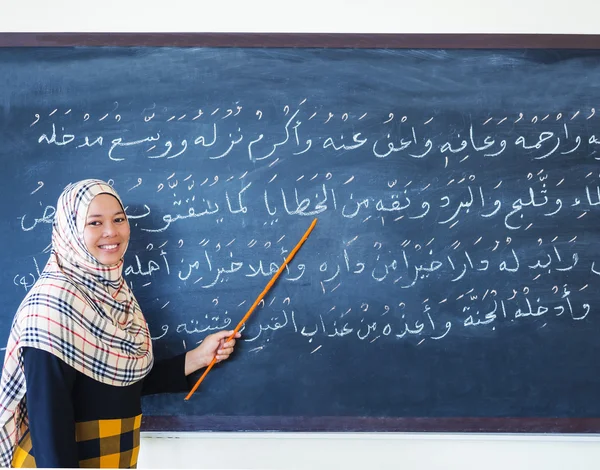 وَارْحَمْهُ وَعَافِهِ وَاعْفُ عَنْهُ وَأَكْرِمْ نُزُلَهُ وَوَسِّعْ مَدْخَلَهُ
وَثَّلْجِ وَالْبَرَدِ وَنَقِّهِ مِنَ الْخَطَايَا كَمَا
وَابْدِ لْهُ دَارًا خَيْرًا مِنْ دَارِهِ وَأَهْلًا خَيْرًا مِنْ اَهْلِهِ
وَأَدْخِلْهُ الْجَنَّةَ وَأَعِذْهُ مِنْ عَذَابِ الْقَبْرِ وَفِتْنَتِهِ